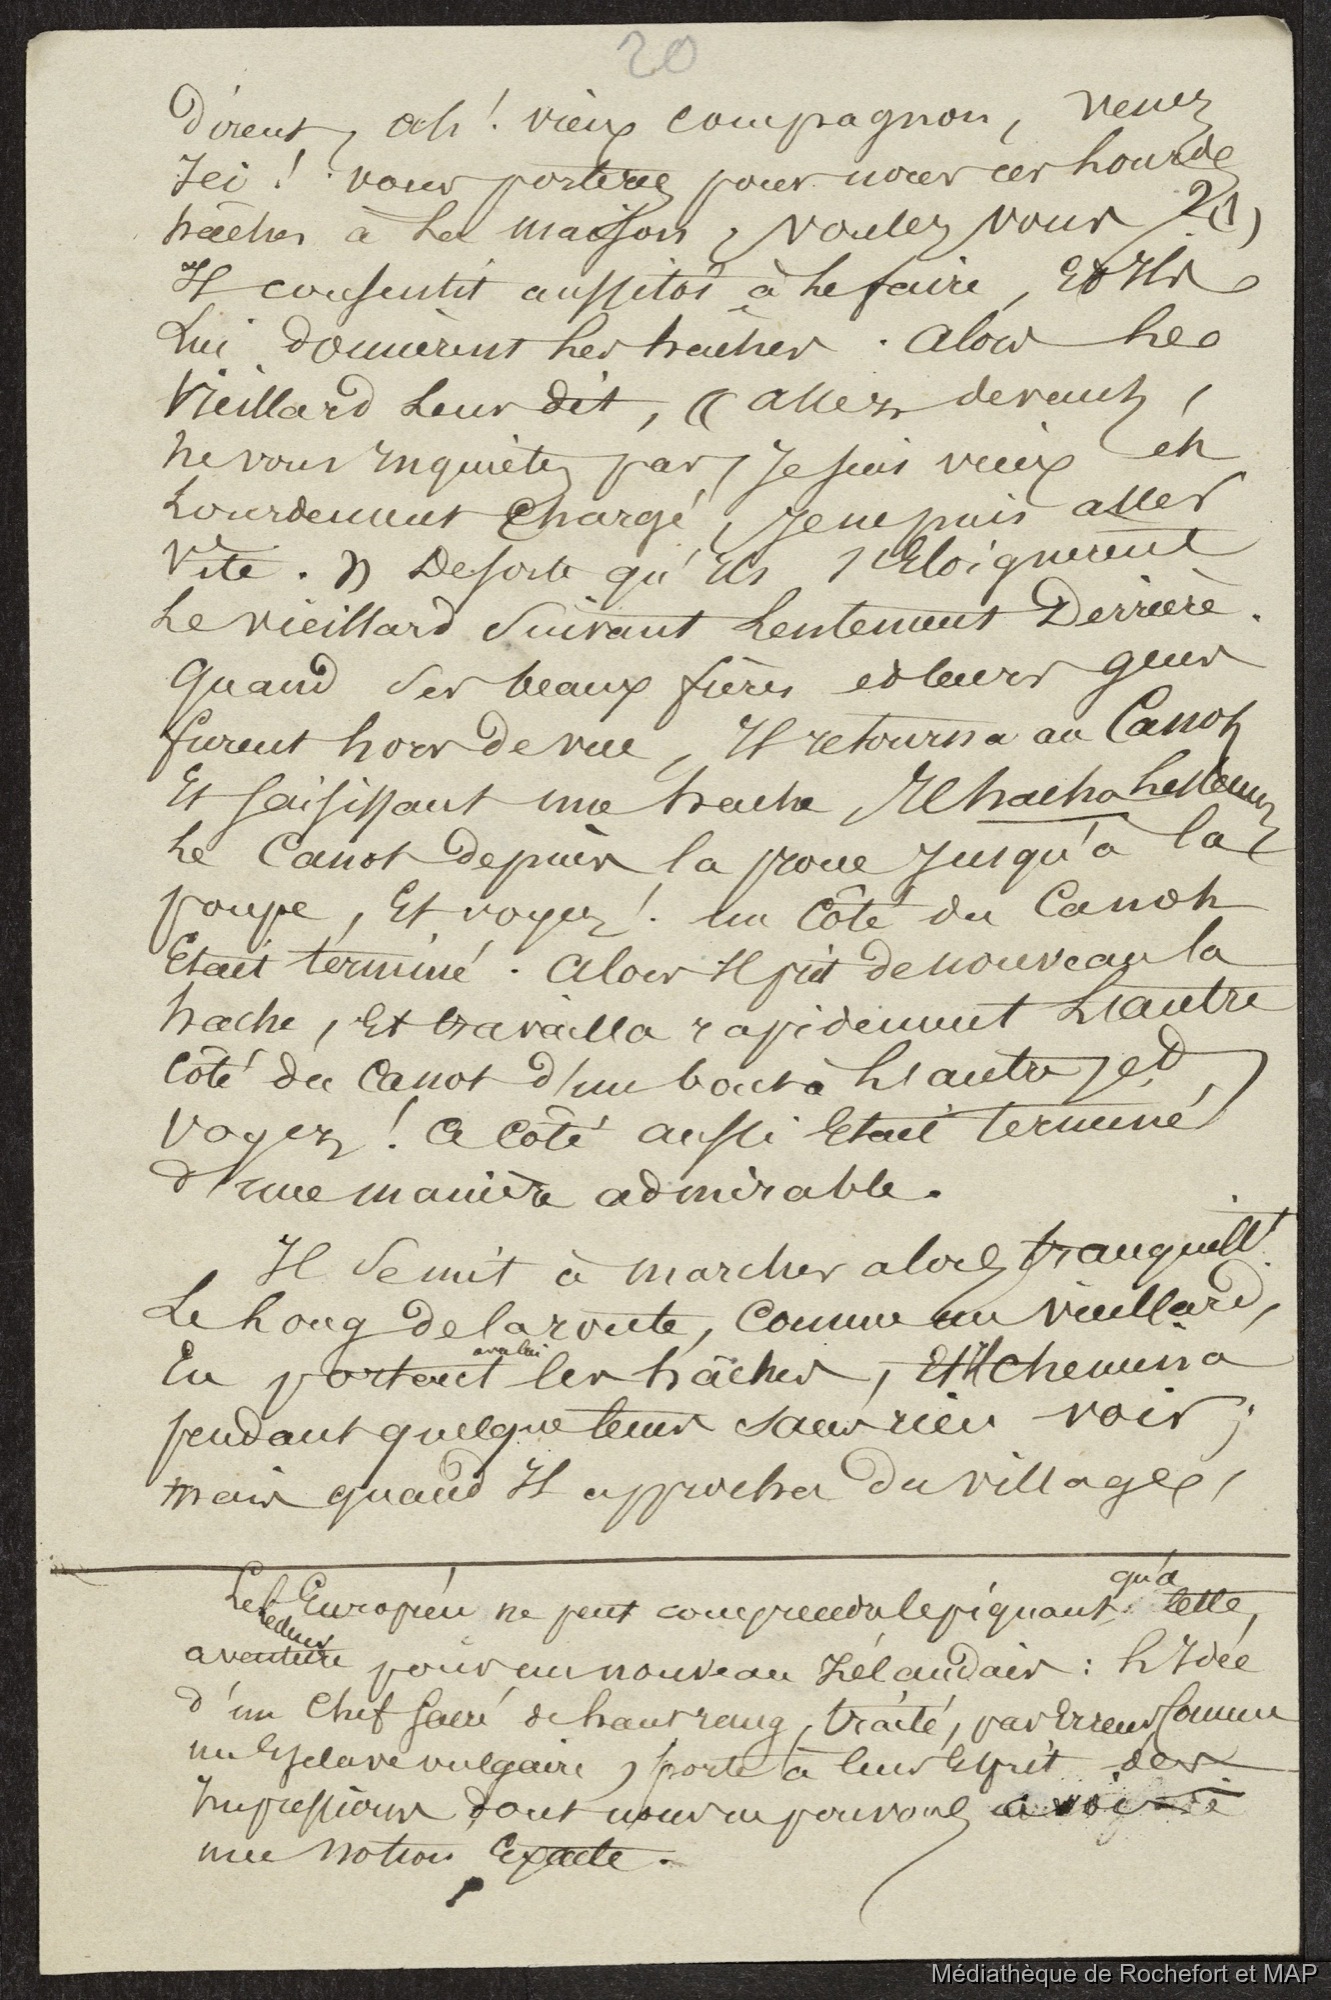 20
dirent, ah! vieux compagnon, venez
Ici! vous porterez pour nous ces lourdes
hâches à la maison, voulez vous ? (1)
Il consentit aussitôt à le faire, Et Ils
Lui donnèrent les hâches. Alors le
Vieillard leur dit, « allez devant,
ne vous Inquiétez pas, Je suis vieux et
Lourdement chargé, Je ne puis aller
Vite. » De sorte qu'Ils s'Eloignèrent
Le vieillard suivant lentement Derrière.
Quand ses beaux frères et leurs gens
furent hors de vue, Il retourna au Canot
Et saisissant une hache Il hacha lestement
Le Canot depuis la proue jusqu'à la
poupe, Et voyez! un Côté du Canot
Etait terminé. Alors Il prit de nouveau la
hache, Et travailla rapidement L'autre
Côté du Canot d'un bout à l'autre, et
Voyez! Ce Côté aussi Etait terminé
d'une manière admirable.
Il se mit à marcher alors tranquillt
Le long de la route, Comme un vieillard,
En portant avec lui les hâches, Et Il chemina
pendant quelque tems sans rien voir;
mais quand Il approcha du village,
Les Européen ne peut comprendre le piquant qu'a cette
aventure pour un nouveau Zélandais: L'Idée
d'un Chef sacré de haut rang, traité, par Erreur, Comme
un Esclave vulgaire, porte à leur Esprit des
Impressions dont nous ne pouvons avoir
une notion Exacte.
Médiathèque de Rochefort et MAP